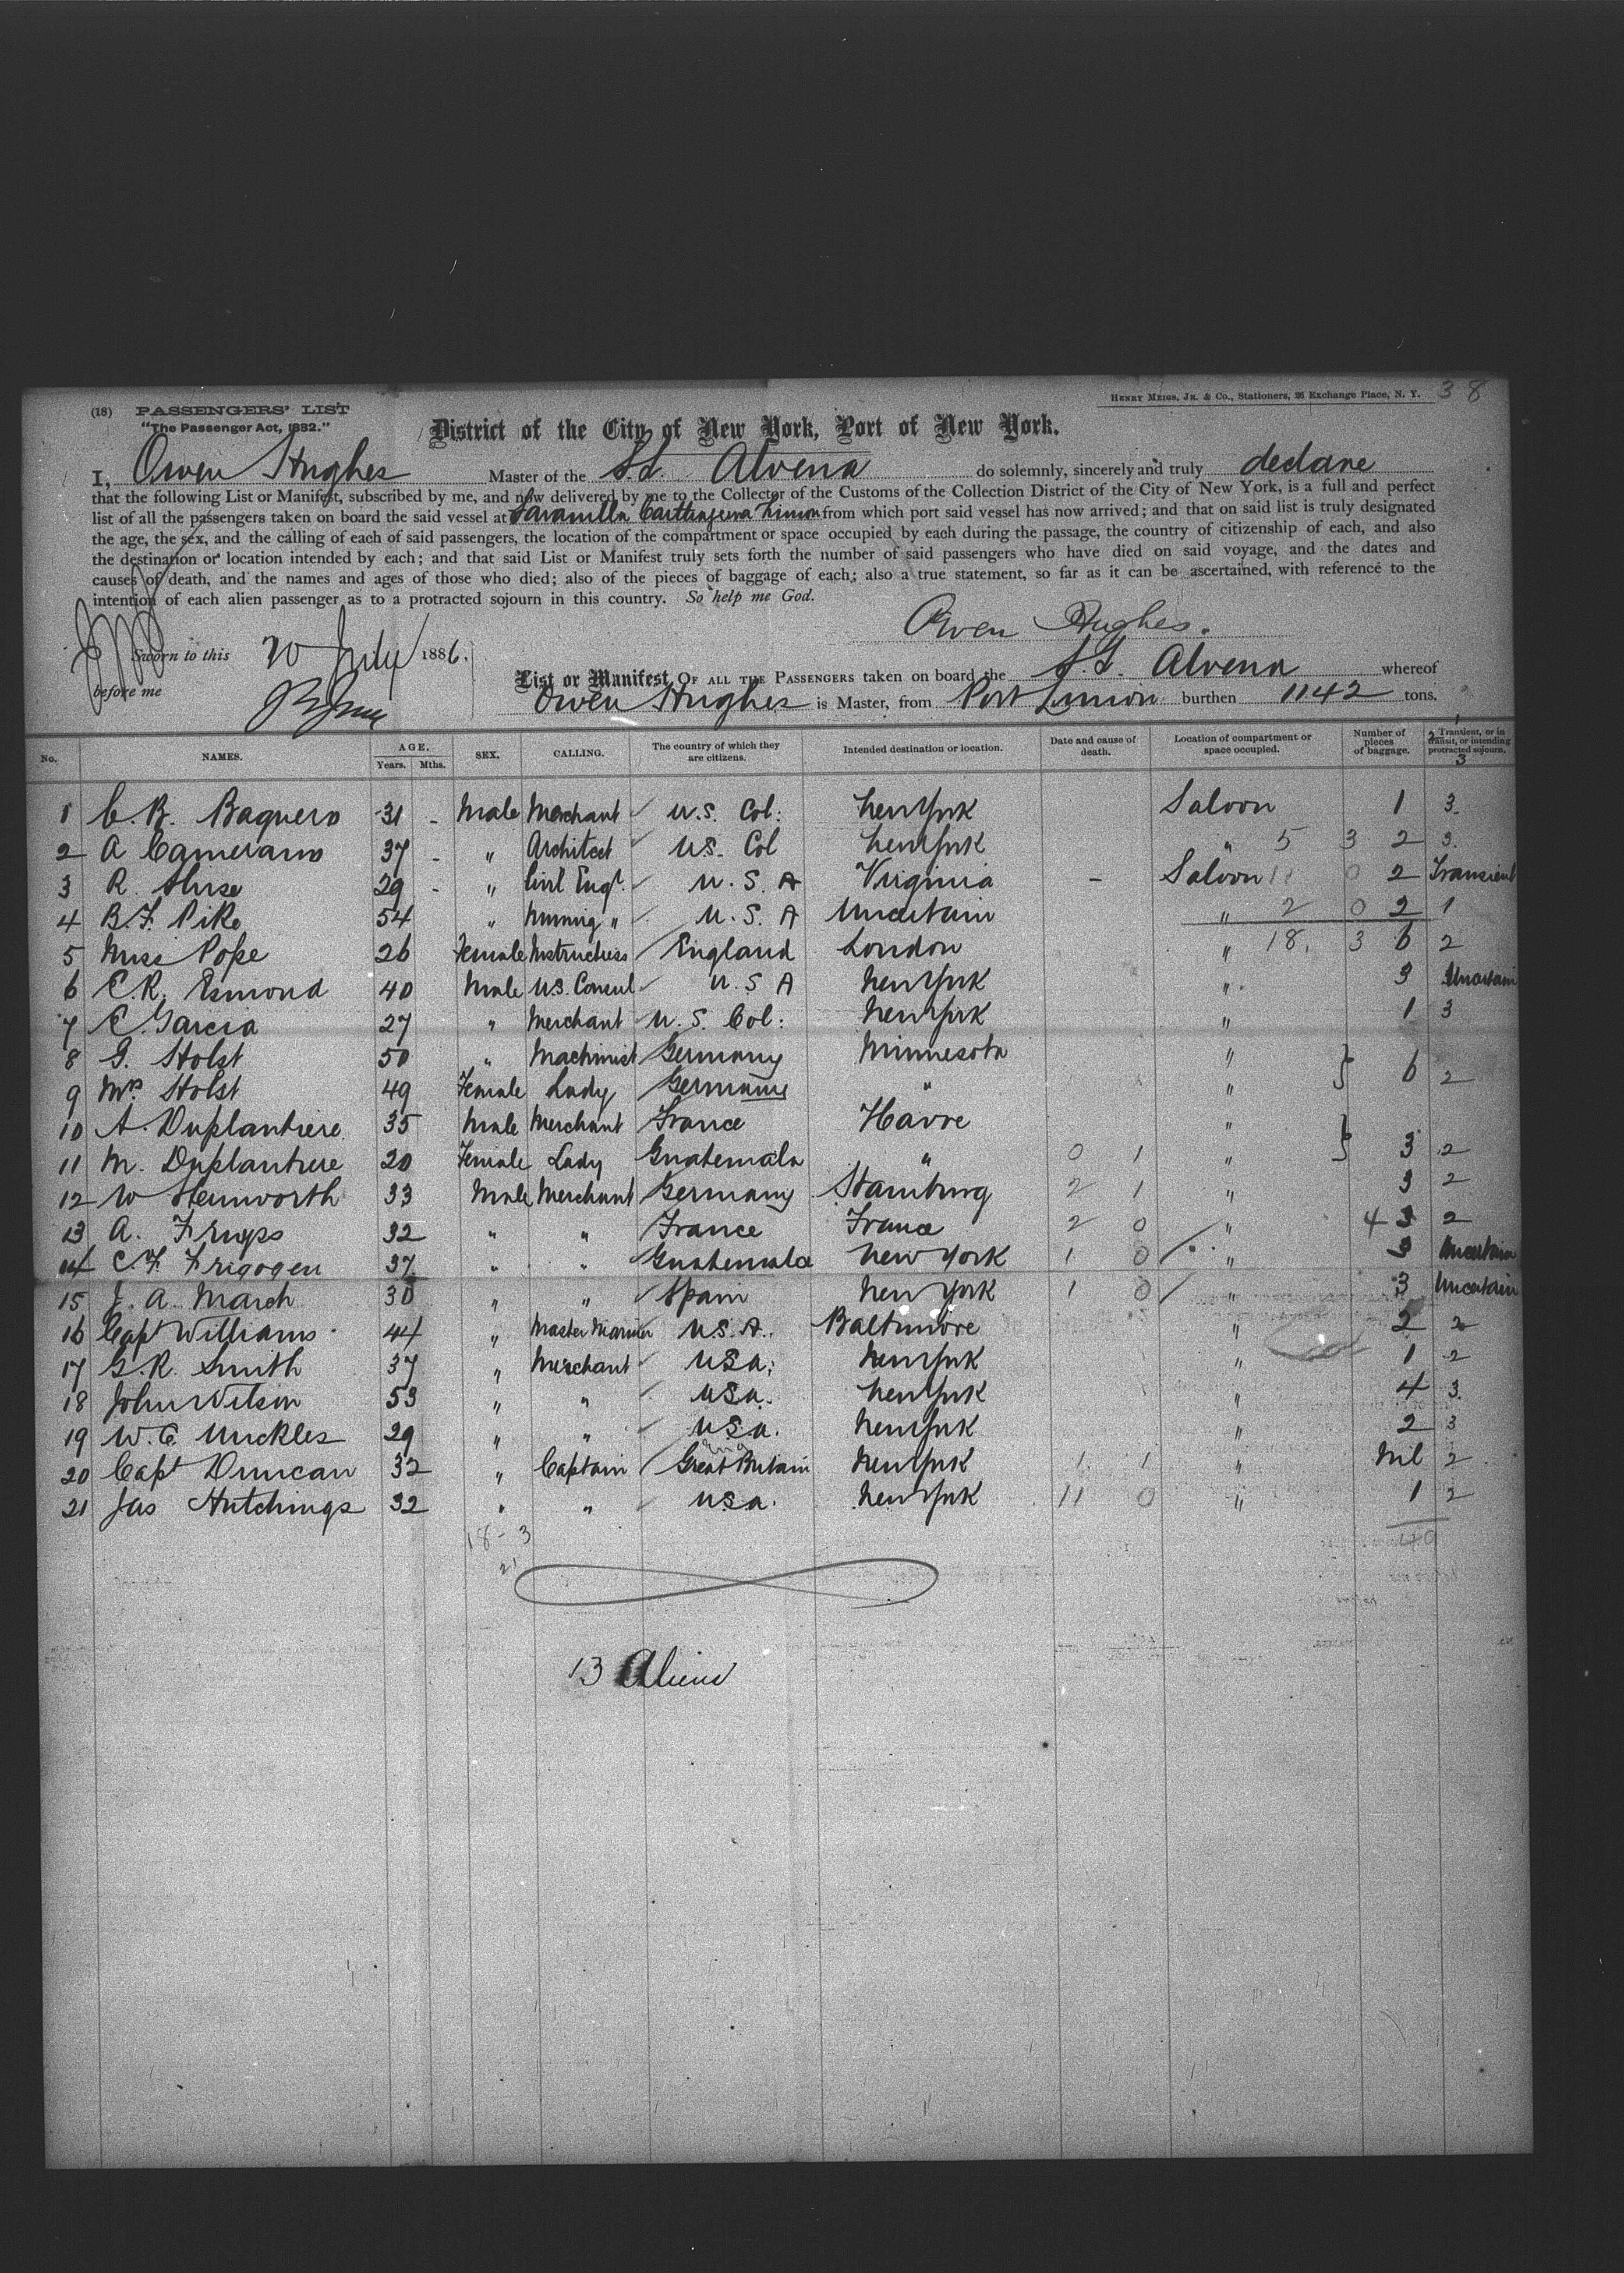 38
HENRY MEIGS, JR. & CO., Stationers, 26 Exchange Place, N. Y.
(18) PASSENGERS' LIST
"The Passenger Act, 1882."
District of the City of New York, Port of New York.
I, Owen Hughes Master of the SS. Alvena do solemnly, sincerely and truly declare
that the following List or Manifest, subscribed by me, and now delivered by me to the Collector of the Customs of the Collection District of the City of New York, is a full and perfect
list of all the passengers taken on board the said vessel at Savanilla Carthagena Limon from which port said vessel has now arrived; and that on said list is truly designated
the age, the sex, and the calling of each of said passengers, the location of the compartment or space occupied by each during the passage, the country of citizenship of each, and also
the destination or location intended by each; and that said List or Manifest truly sets forth the number of said passengers who have died on said voyage, and the dates and
causes of death, and the names and ages of those who died; also of the pieces of baggage of each; also a true statement, so far as it can be ascertained, with reference to the
intention of each alien passenger as to a protracted sojourn in this country. So help me God.
Owen Hughes.
Sworn to this 20 July 1886.
before me
List or Manifest OF ALL THE PASSENGERS taken on board the S.S. Alvena whereof
Owen Hughes is Master, from Port Limon burthen 1142 tons.
No. NAMES. AGE. Years. Mths. SEX. CALLING. The country of which they are citizens. Intended destination or location. Date and cause of death. Location of compartment or space occupied. Number of pieces of baggage. Transient, or in transit, or intending protracted sojourn. 1 2 3
1 C. B. Baquero 31 - Male Merchant U.S. Col: New York Saloon 1 3.
2 A Camerano 37 - " Architect US. Col New York " 5 3 2 3.
3 R. Huse 29 - " Civil Engr. U.S.A Virginia - Saloon 18 0 2 Transient
4 B.F. Pike 54 " Mining " U.S.A Uncertain " 2 0 2 1
5 Miss Pope 26 Female Instructress England London " 18. 3 6 2
6 C.R. Esmond 40 Male U.S. Consul U.S A New York " 3 Uncertain
7 C. Garcia 27 " Merchant U.S. Col: New York " 1 3
8 G. Holst 50 " Machinist Germany Minnesota "
9 Mrs Holst 49 Female Lady Germany " " } 6 2
10 A. Duplantiere 35 Male Merchant France Havre "
11 M. Duplantiere 20 Female Lady Guatemala " 0 1 " } 3 2
12 W Hemworth 33 Male Merchant Germany Hamburg 2 1 " 3 2
13 A. Frups 32 " " France France 2 0 " 4 3 2
14 C.F. Frigogen 37 " " Guatemala New York 1 0 " 3 Uncertain
15 J. A. March 30 " " Spain New York 1 0 " 3 Uncertain
16 Capt Williams 44 " Master Mariner U.S.A. Baltimore " 2 2
17 G.R. Smith 37 " Merchant USA. New York " 1 2
18 John Wilson 53 " " USA. New York " 4 3.
19 W.C. Muckles 29 " " USA. New York " 2 3
20 Capt Duncan 32 " Captain Great Britain New York 1 1 " Nil 2
21 Jas Hutchings 32 " " USA. New York 11 0 " 1 2
18-3
21
40
13 Aliens